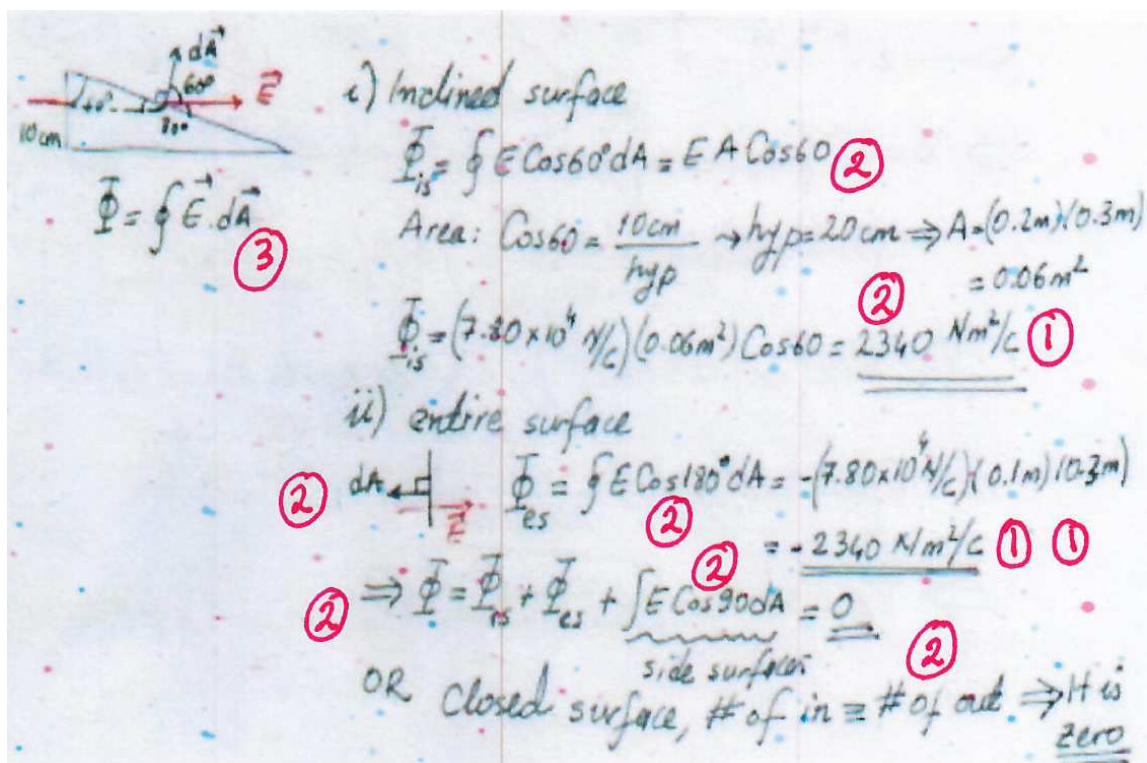 dA⃗
60°
E⃗
10cm
Φ = ∮ E⃗ . dA⃗
③
i) Inclined surface
Φis = ∮ E Cos60° dA = E A Cos60 ②
Area: Cos60 = 10cm / hyp → hyp = 20 cm ⇒ A = (0.2m)(0.3m)
② = 0.06m²
Φis = (7.80×10⁴ N/C)(0.06m²) Cos60 = 2340 Nm²/C ①
ii) entire surface
② dA E⃗ Φes = ∮ E Cos180° dA = -(7.80×10⁴ N/C)(0.1m)(0.3m)
② = -2340 Nm²/C ① ①
② ⇒ Φ = Φis + Φes + ∫ E Cos90 dA = 0
②
side surfaces ②
OR Closed surface, # of in = # of out ⇒ It is
zero